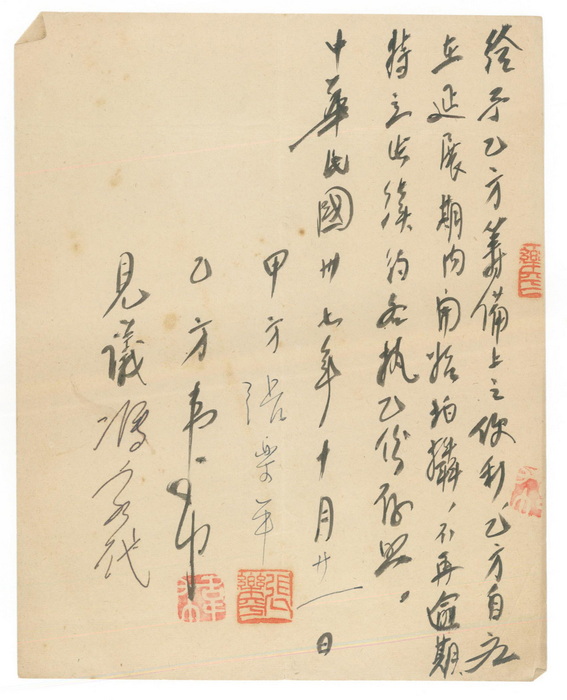 给予乙方籌備上之便利，乙方自应
在延展期内開始拍攝，不再逾期.
特立此續约各执乙份存照。
中華民國卅七年十月廿一日
甲方 張樂平
乙方 韦布
見議 馮亦代